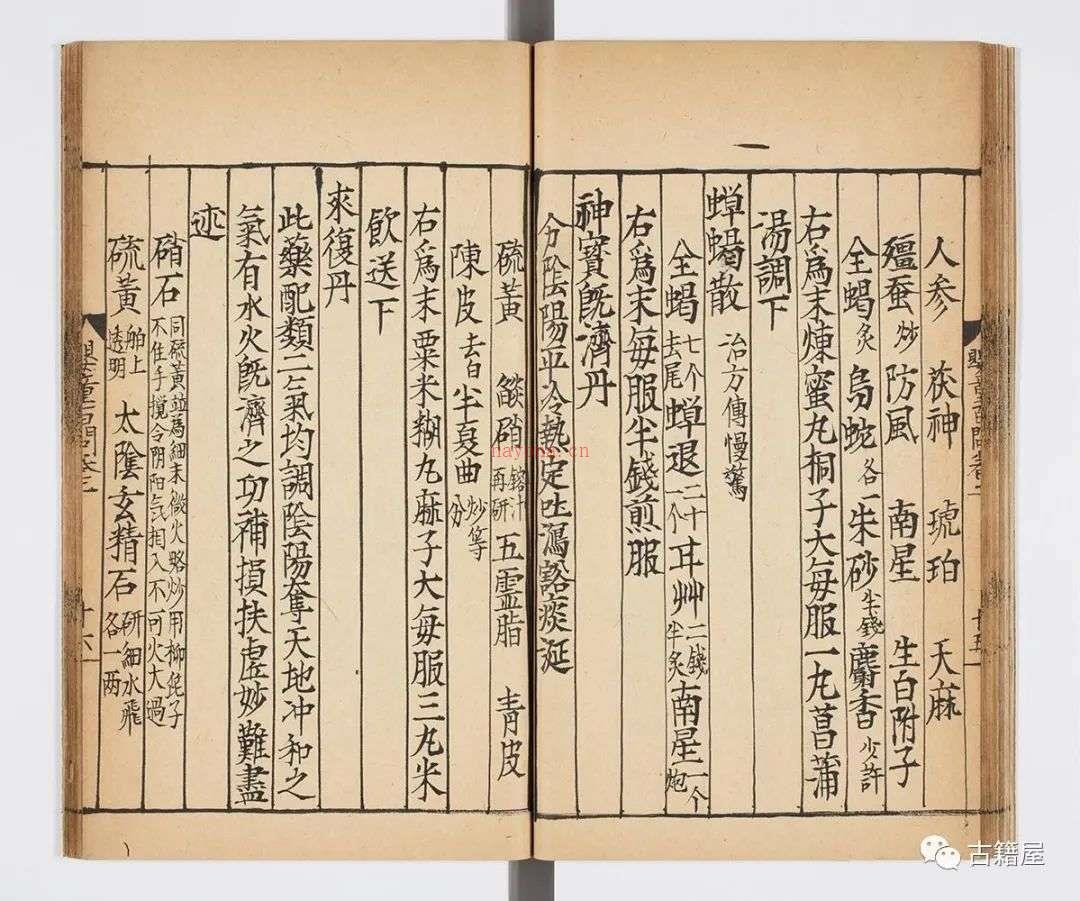 人参 茯神 琥珀 天麻
殭蚕炒 防風 南星 生白附子
全蝎炙 烏蛇各一 朱砂半錢 麝香少許
右為末煉蜜丸桐子大每服一丸菖蒲
湯調下
蝉蝎散 治方傳慢驚
全蝎七个去尾 蝉退二十一个 甘艸二錢半炙 南星一个炮
右為末每服半錢煎服
神寳既濟丹
分陰陽平冷熱定吐瀉豁痰涎
硫黄 焰硝鎔汁再研 五霊脂 青皮
陳皮去白 半夏曲炒等分
右為末粟米糊丸麻子大每服三丸米
飲送下
來復丹
此藥配類二氣均調陰陽奪天地冲和之
氣有水火既濟之功補損扶虛妙難盡
述
硝石同硫黄並為細末微火略炒用柳篦子不住手攪令阴阳气相入不可火大過
硫黄舶上透明 太陰玄精石研細水飛各一两
十五
十六
古籍屋
hayuan.cn